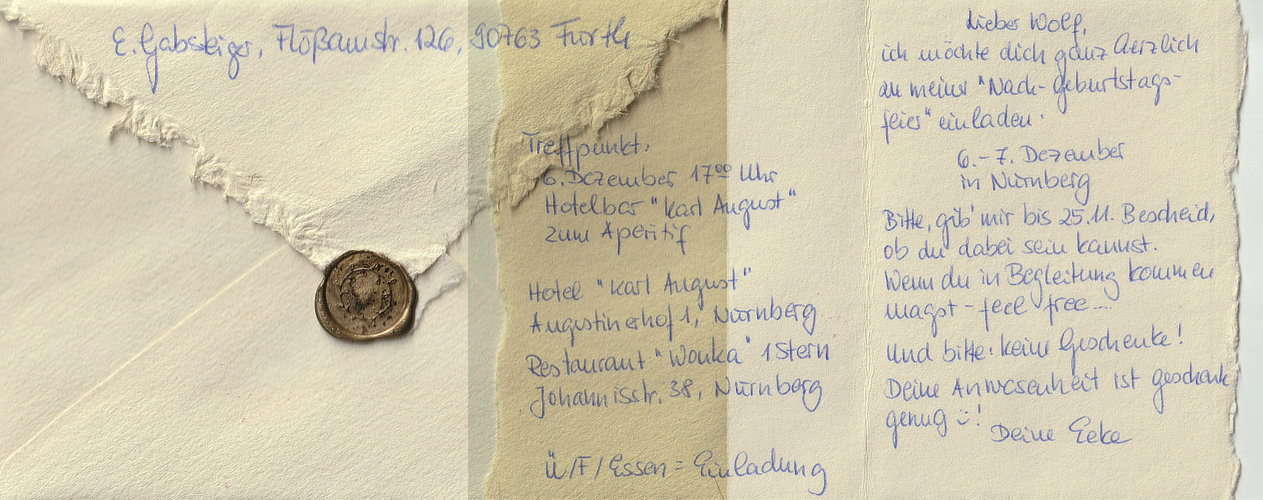 E. Gabsteiger, Flößaustr. 126, 90763 Fürth
Treffpunkt:
6. Dezember 17⁰⁰ Uhr
Hotelbar "Karl August"
zum Aperitif
Hotel "Karl August"
Augustinerhof 1, Nürnberg
Restaurant "Wonka" 1 Stern
Johannisstr. 38, Nürnberg
Ü/F/Essen = Einladung
Lieber Wolf,
ich möchte dich ganz herzlich
zu meiner "Nach-Geburtstags-
feier" einladen.
6.-7. Dezember
in Nürnberg
Bitte, gib' mir bis 25.11. Bescheid,
ob du dabei sein kannst.
Wenn du in Begleitung kommen
magst - feel free....
Und bitte: keine Geschenke!
Deine Anwesenheit ist Geschenk
genug ☺!
Deine